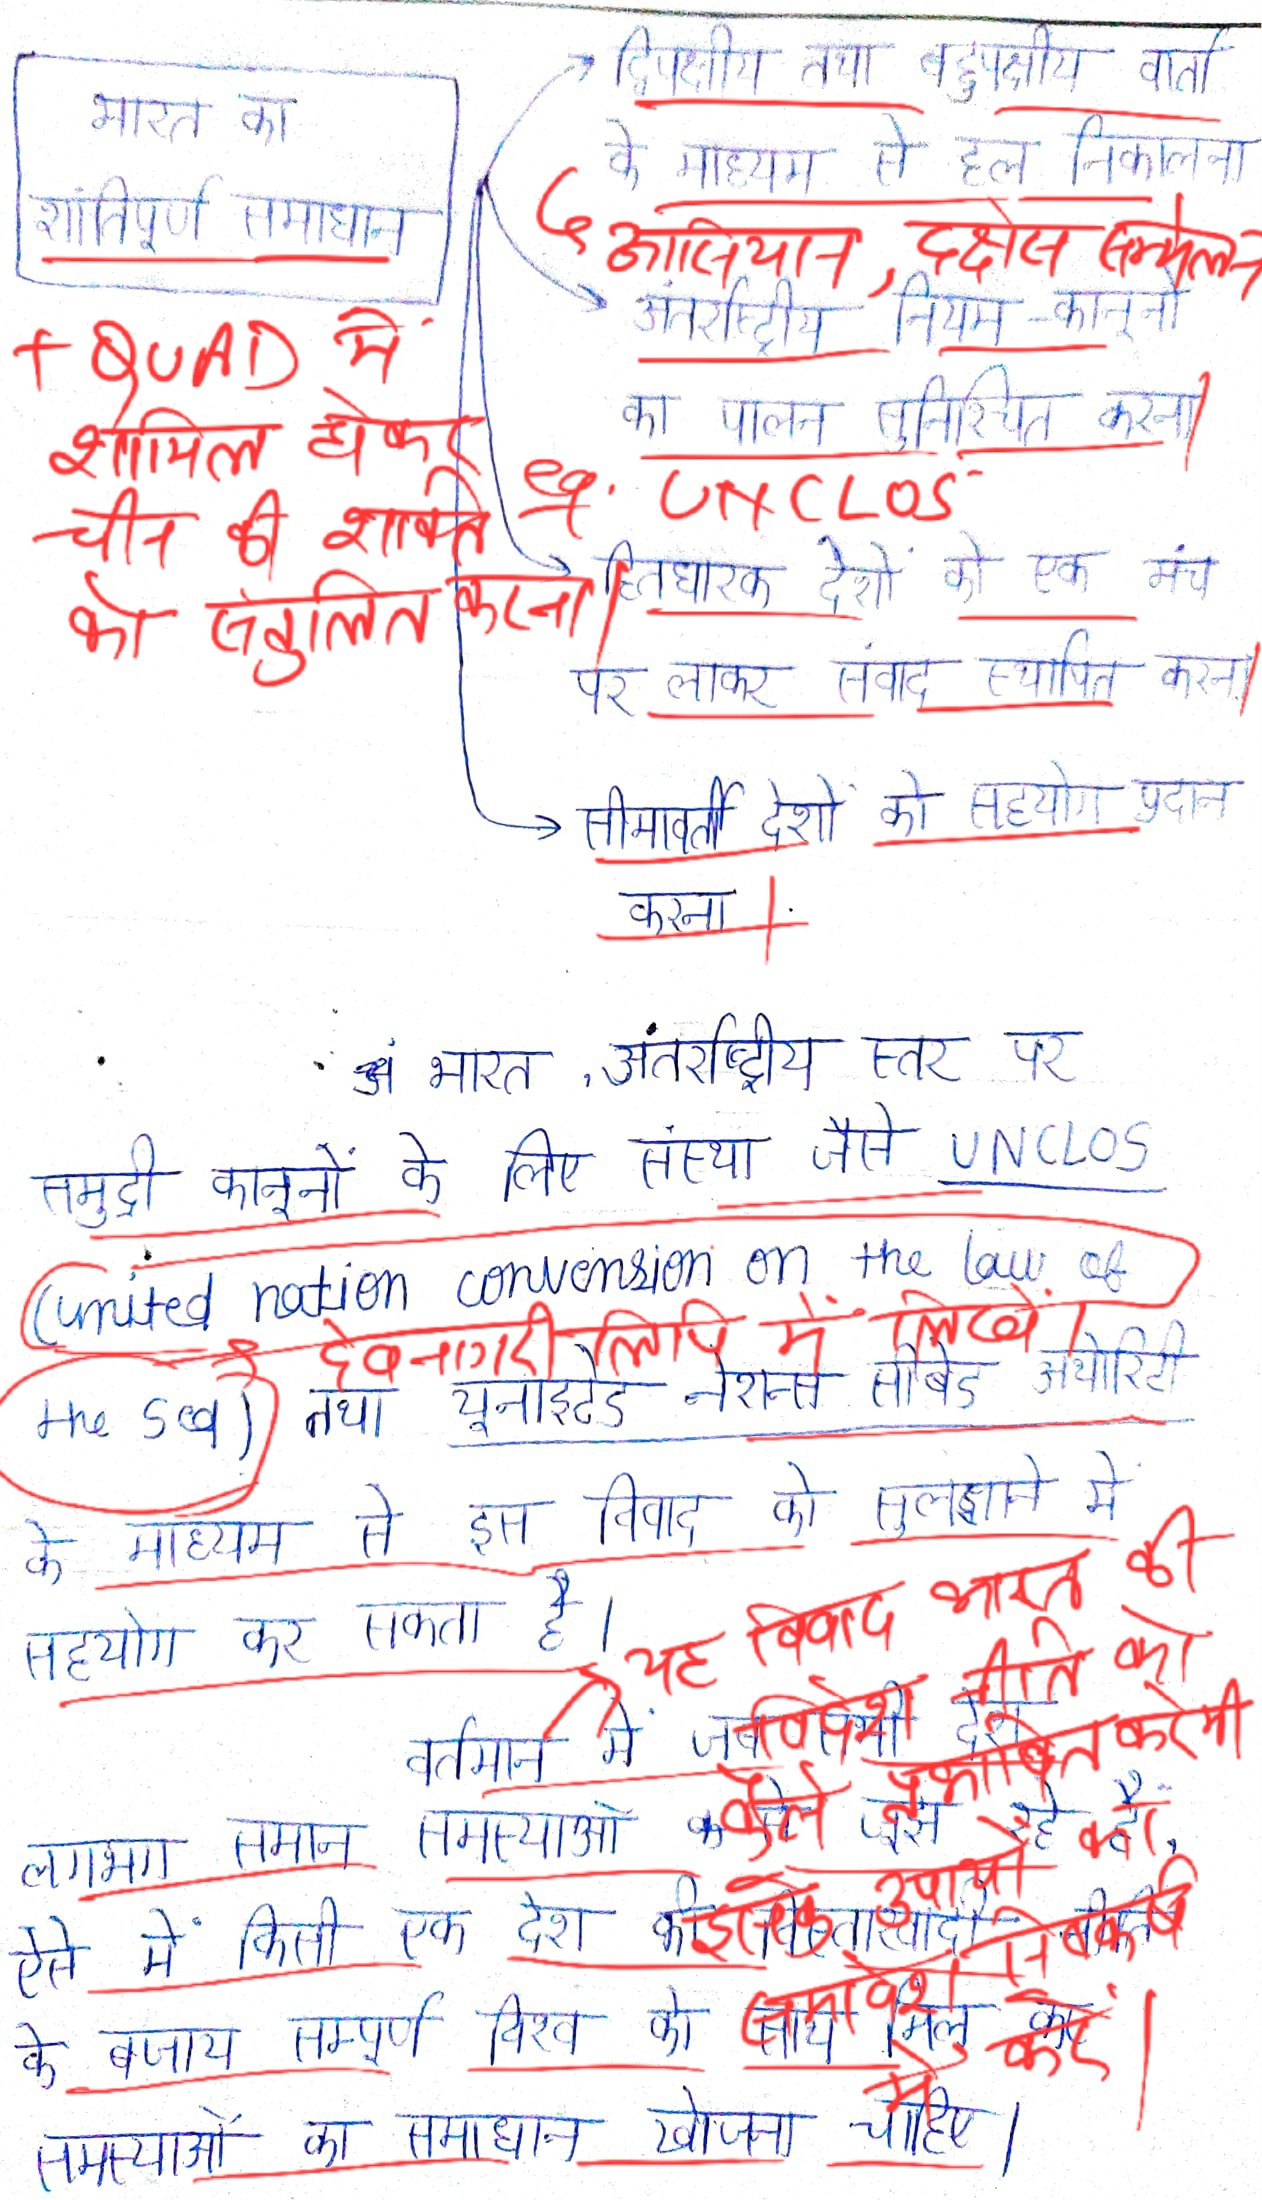 भारत का
शांतिपूर्ण समाधान
+ QUAD में
शामिल होकर
चीन की शक्ति
को संतुलित करना।
द्विपक्षीय तथा बहुपक्षीय वार्ता
के माध्यम से हल निकालना
आसियान, दक्षेस सम्मेलन
अंतर्राष्ट्रीय नियम-कानूनों
का पालन सुनिश्चित करना।
eg. UNCLOS
हितधारक देशों को एक मंच
पर लाकर संवाद स्थापित करना।
सीमावर्ती देशों को सहयोग प्रदान
करना।
भारत, अंतर्राष्ट्रीय स्तर पर
समुद्री कानूनों के लिए संस्था जैसे UNCLOS
(united nation convension on the law of
देवनागरी लिपि में लिखें।
the Sea) तथा यूनाइटेड नेशन्स सीबेड अथोरिटी
के माध्यम से इस विवाद को सुलझाने में
सहयोग कर सकता है।
यह विवाद भारत की
विदेश नीति को
कैसे प्रभावित करेगी
इसके उपायों का
समावेश निष्कर्ष
में करें।
वर्तमान में जब सभी देश
लगभग समान समस्याओं से जूझ रहे हैं,
ऐसे में किसी एक देश की विस्तारवादी नीति
के बजाय सम्पूर्ण विश्व को साथ मिल कर
समस्याओं का समाधान खोजना चाहिए।